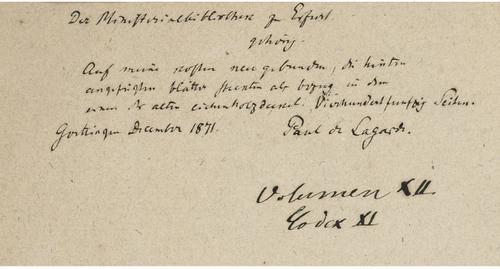 Der Ministerialbibliothek zu Erfurt
gehörig.
Auf meine Kosten neu gebunden, die hinten
angefügten blätter dienten als bezug in dem
innern der alten eichenholzdeckel. Vierhundertfunfzig Seiten.
Goettingen December 1871. Paul de Lagarde.
Volumen XII.
Codex XI